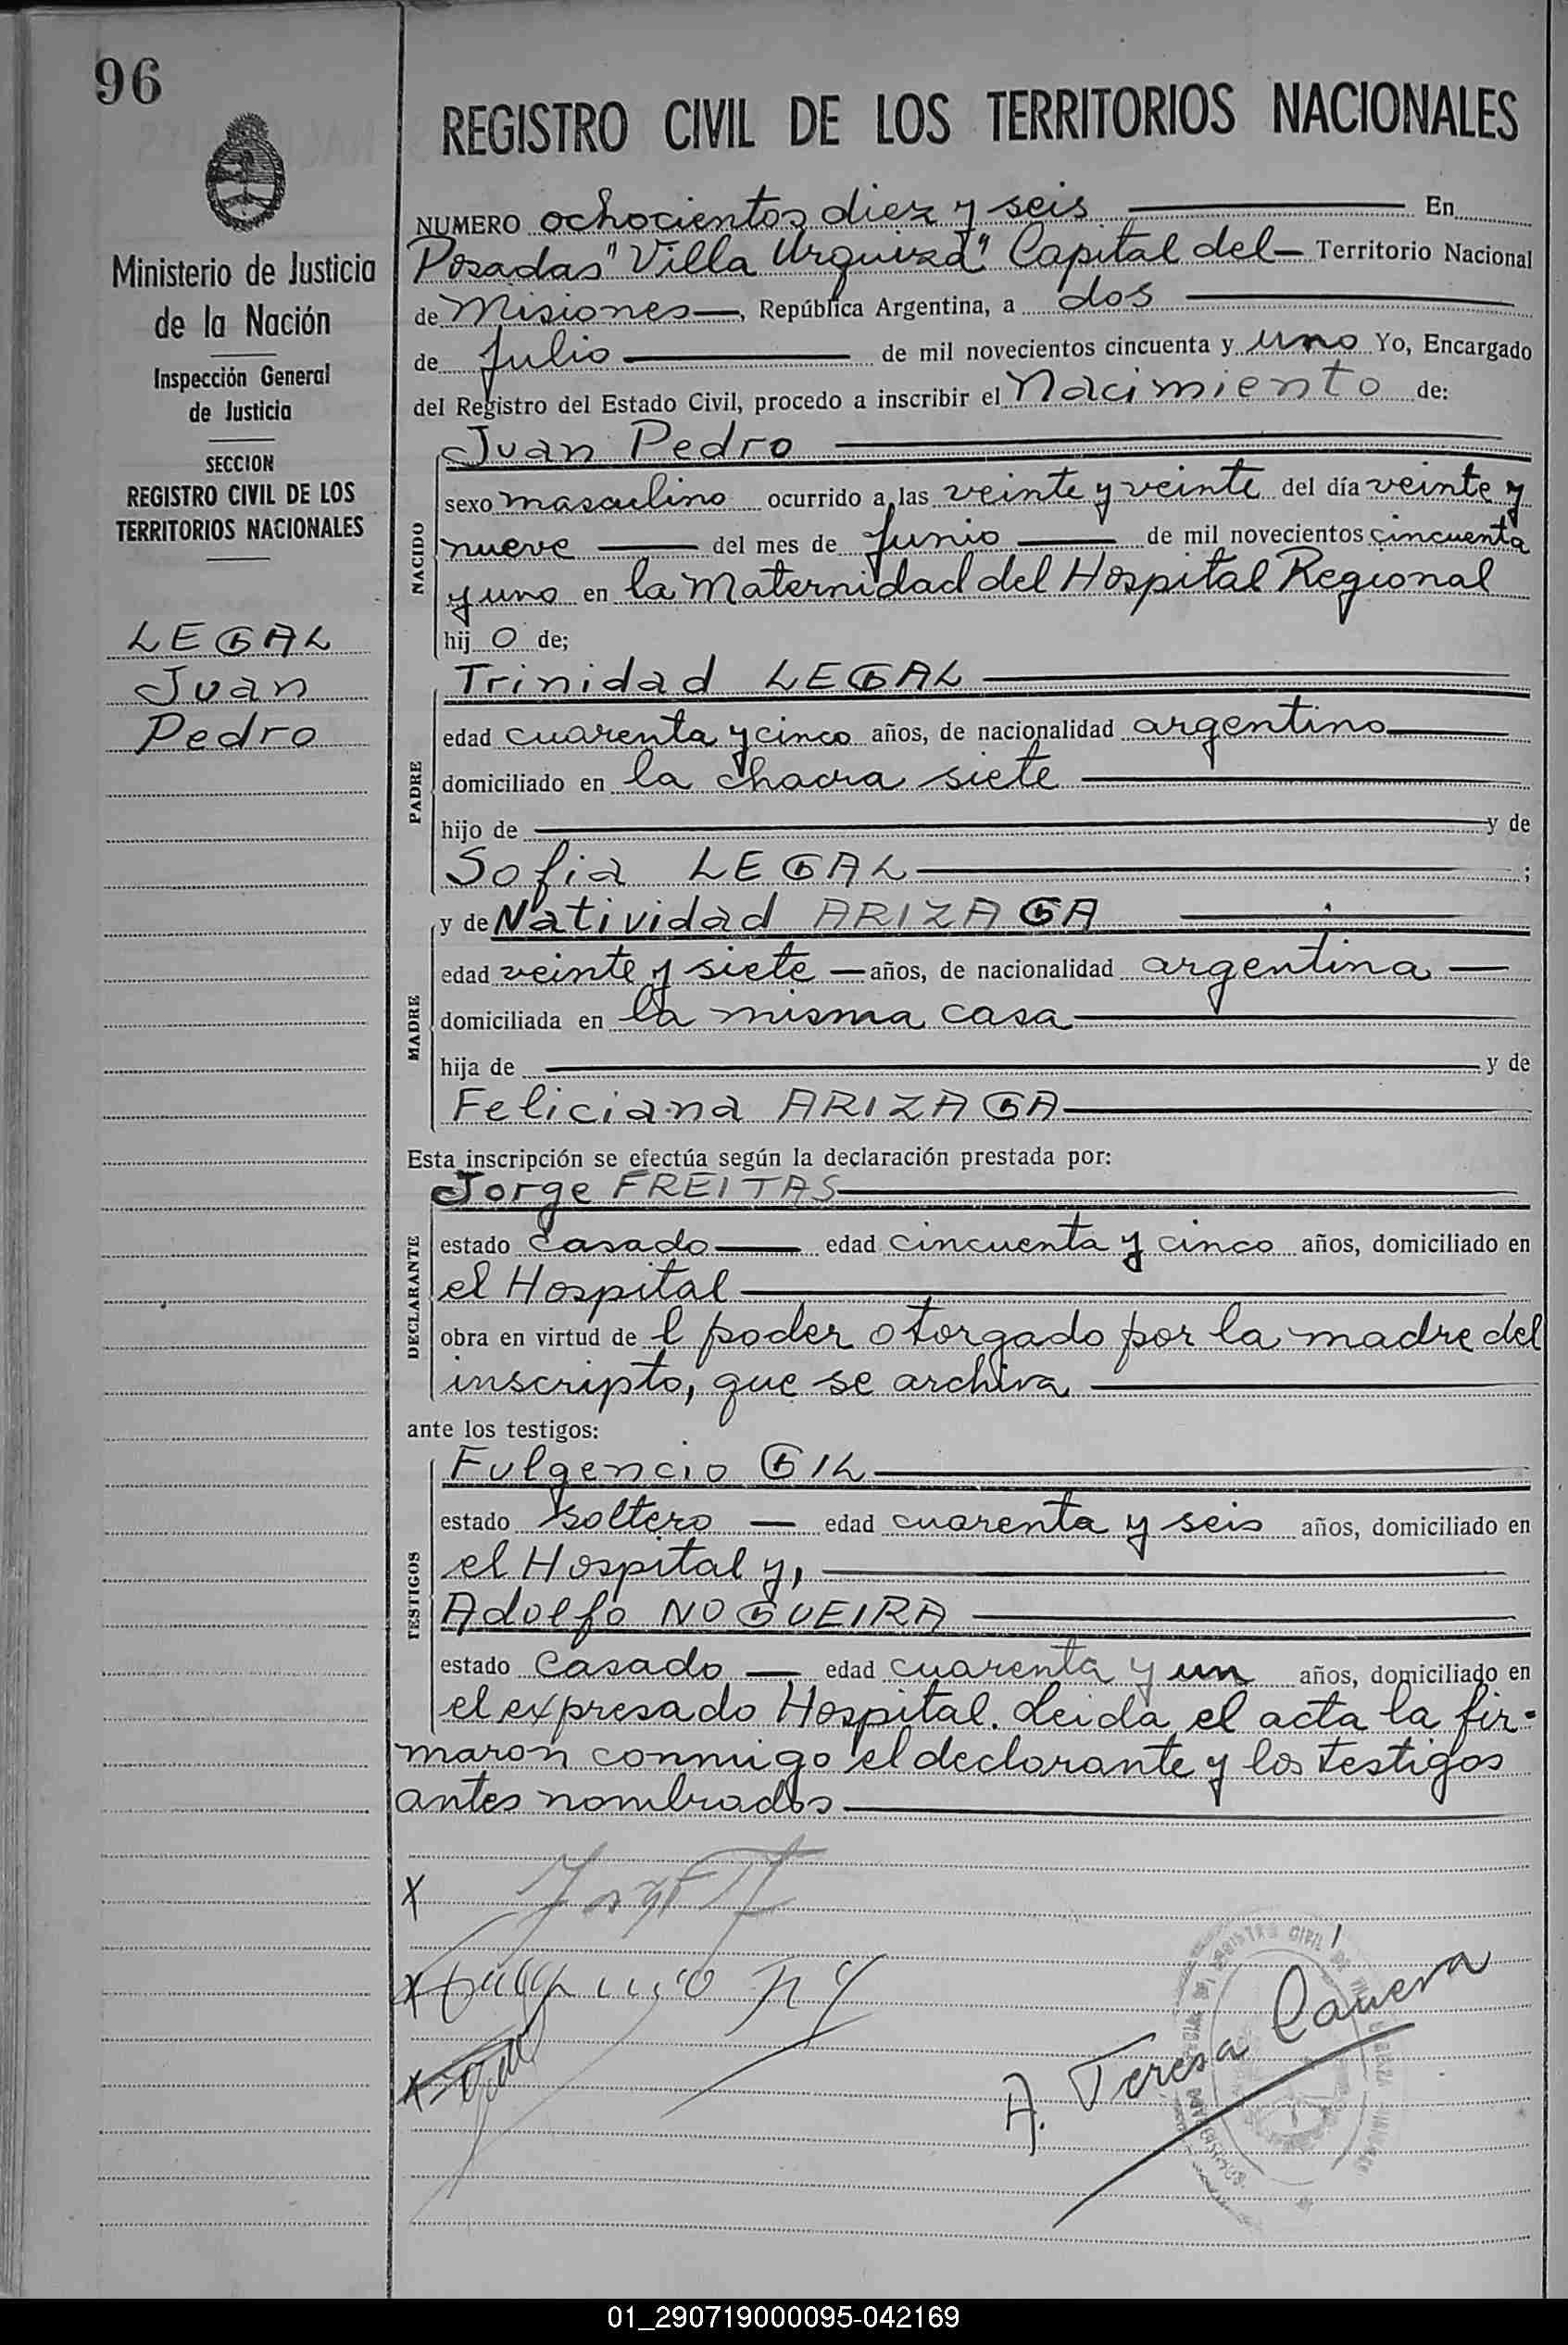 96
REGISTRO CIVIL DE LOS TERRITORIOS NACIONALES
Ministerio de Justicia
de la Nación
Inspección General
de Justicia
SECCION
REGISTRO CIVIL DE LOS
TERRITORIOS NACIONALES
LEGAL
Juan
Pedro
NUMERO ochocientos diez y seis En
Posadas "Villa Urquiza" Capital del Territorio Nacional
de Misiones, República Argentina, a dos
de Julio de mil novecientos cincuenta y uno Yo, Encargado
del Registro del Estado Civil, procedo a inscribir el Nacimiento de:
NACIDO
Juan Pedro
sexo masculino ocurrido a las veinte y veinte del día veinte y
nueve del mes de Junio de mil novecientos cincuenta
y uno en la Maternidad del Hospital Regional
hij o de;
PADRE
Trinidad LEGAL
edad cuarenta y cinco años, de nacionalidad argentino
domiciliado en la chacra siete
hijo de y de
Sofia LEGAL ;
MADRE
y de Natividad ARIZAGA
edad veinte y siete años, de nacionalidad argentina
domiciliada en la misma casa
hija de y de
Feliciana ARIZAGA
Esta inscripción se efectúa según la declaración prestada por:
DECLARANTE
Jorge FREITAS
estado casado edad cincuenta y cinco años, domiciliado en
el Hospital
obra en virtud de l poder otorgado por la madre del
inscripto, que se archiva
ante los testigos:
TESTIGOS
Fulgencio GIL
estado soltero edad cuarenta y seis años, domiciliado en
el Hospital y,
Adolfo NOGUEIRA
estado casado edad cuarenta y un años, domiciliado en
el expresado Hospital. Leida el acta la fir-
maron conmigo el declarante y los testigos
antes nombrados
X
X
X
A. Teresa
01_290719000095-042169